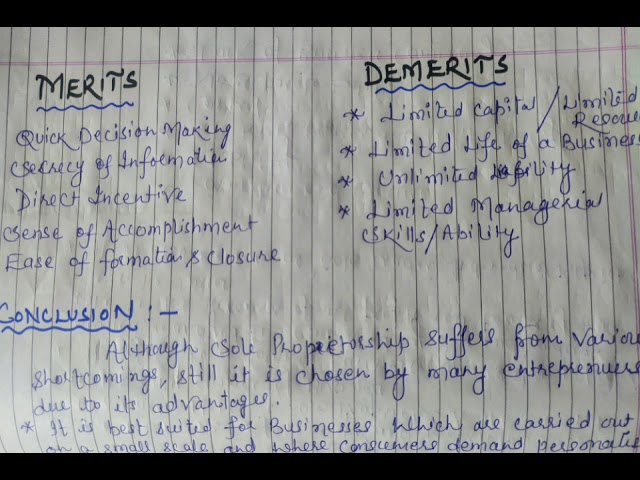 MERITS
Quick Decision Making
Secrecy of Information
Direct Incentive
Sense of Accomplishment
Ease of formation & Closure
DEMERITS
* Limited Capital / Limited
* Limited Life of a Business
* Unlimited Liability
* Limited Managerial
Skills/Ability
CONCLUSION :-
Although Sole Proprietorship suffers from Variou
shortcomings, still it is chosen by many entrepreneurs
due to its advantages.
* It is best suited for Businesses which are carried out
on a small scale and where Consumers demand